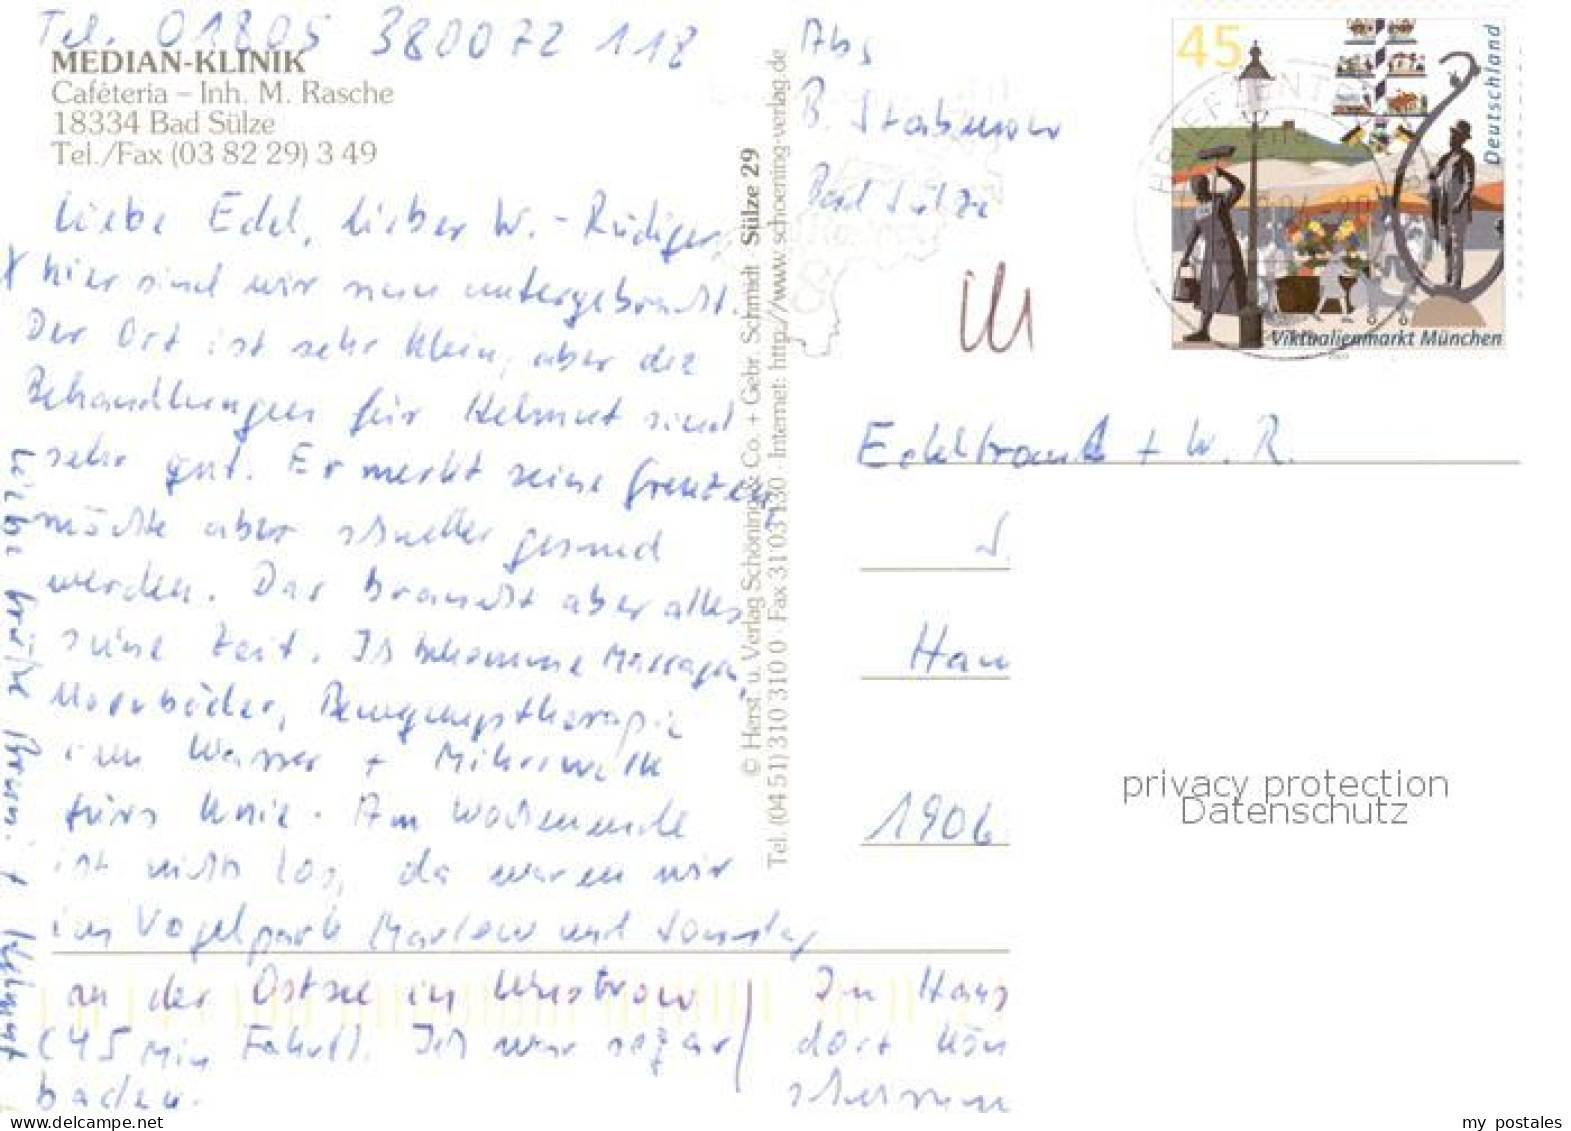 Tel. 01805 380072 118
MEDIAN-KLINIK
Caféteria – Inh. M. Rasche
18334 Bad Sülze
Tel./Fax (03 82 29) 3 49
Liebe Edel, lieber W.-Rüdiger,
hier sind wir nun untergebracht.
Der Ort ist sehr klein, aber die
Behandlungen für Helmut sind
sehr gut. Er merkt seine Grenzen,
möchte aber schneller gesund
werden. Das braucht aber alles
seine Zeit. Ich bekomme Massagen,
Moorbäder, Bewegungstherapie
im Wasser + Mikrowelle
fürs Knie. Am Wochenende
ist nichts los, da waren wir
im Vogelpark Marlow und Sonntag
an der Ostsee in Wustrow
(45 Min Fahrt). Ich war sogar
baden.
Im Haus
dort kön
Liebe Grüße + Helmut
© Herst. u. Verlag Schöning & Co. + Gebr. Schmidt · Sülze 29
Tel. (04 51) 310 310 0 · Fax 31 03 130 · Internet: http://www.schoening-verlag.de
Abs
B.
Bad Sülze
45
Deutschland
Viktualienmarkt München
BRIEFZENTR
+ W. R.
Hau
1906
privacy protection
Datenschutz
delcampe.net
my_postales